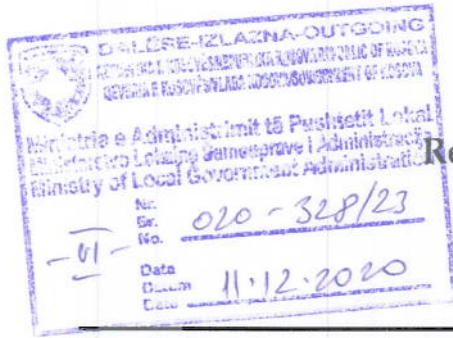 DALËSE-IZLAZNA-OUTGOING
Ministria e Administrimit të Pushtetit Lokal
Ministarstvo Lokalne Samouprave i Administracije
Ministry of Local Government Administration
Re
Nr.
Br.
No.
020-328/23
-VI-
Data
Datum
Date
11.12.2020